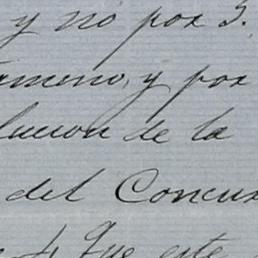 y no por S.
y por
lucion de la
del Concur
Que este